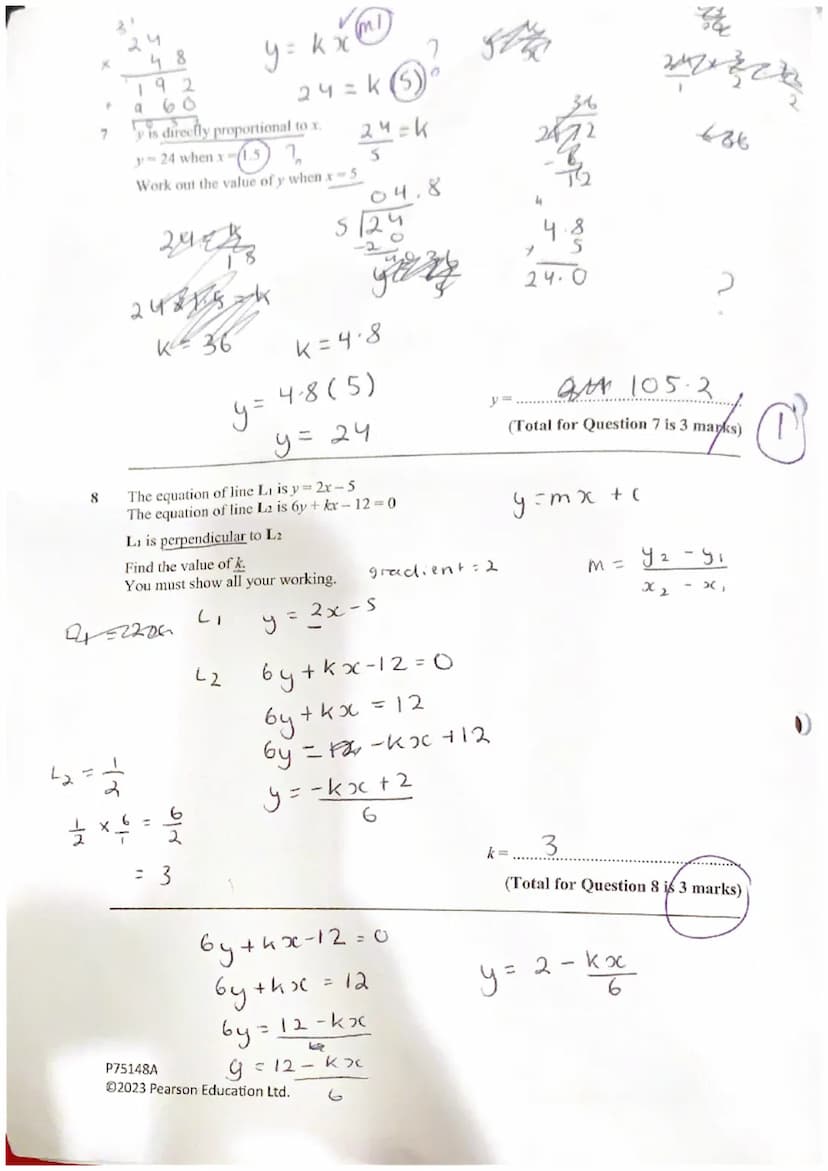 3 1
24
× 48
192
+ 960
y = kx ✓ m1
24 = k(5) ?
7 y is directly proportional to x.
y = 24 when x = 1.5 ?
Work out the value of y when x = 5
24/5 = k
04.8
5 24
-20
40
36
72
12
4
4.8
× 5
24.0
36
?
k = 36
k = 4.8
y = 4.8(5)
y = 24
y = 105.2
(Total for Question 7 is 3 marks) 1
8 The equation of line L1 is y = 2x – 5
The equation of line L2 is 6y + kx – 12 = 0
L1 is perpendicular to L2
Find the value of k.
You must show all your working.
gradient = 2
y = mx + c
m = y2 - y1 / x2 - x1
L1 y = 2x - 5
L2 6y + kx - 12 = 0
6y + kx = 12
6y = -kx + 12
y = -kx + 2 / 6
L2 = 1/2
1/2 × 6/1 = 6/2
= 3
k = 3
(Total for Question 8 is 3 marks)
6y + kx - 12 = 0
6y + kx = 12
6y = 12 - kx
y = 12 - kx / 6
y = 2 - kx/6
P75148A
©2023 Pearson Education Ltd.